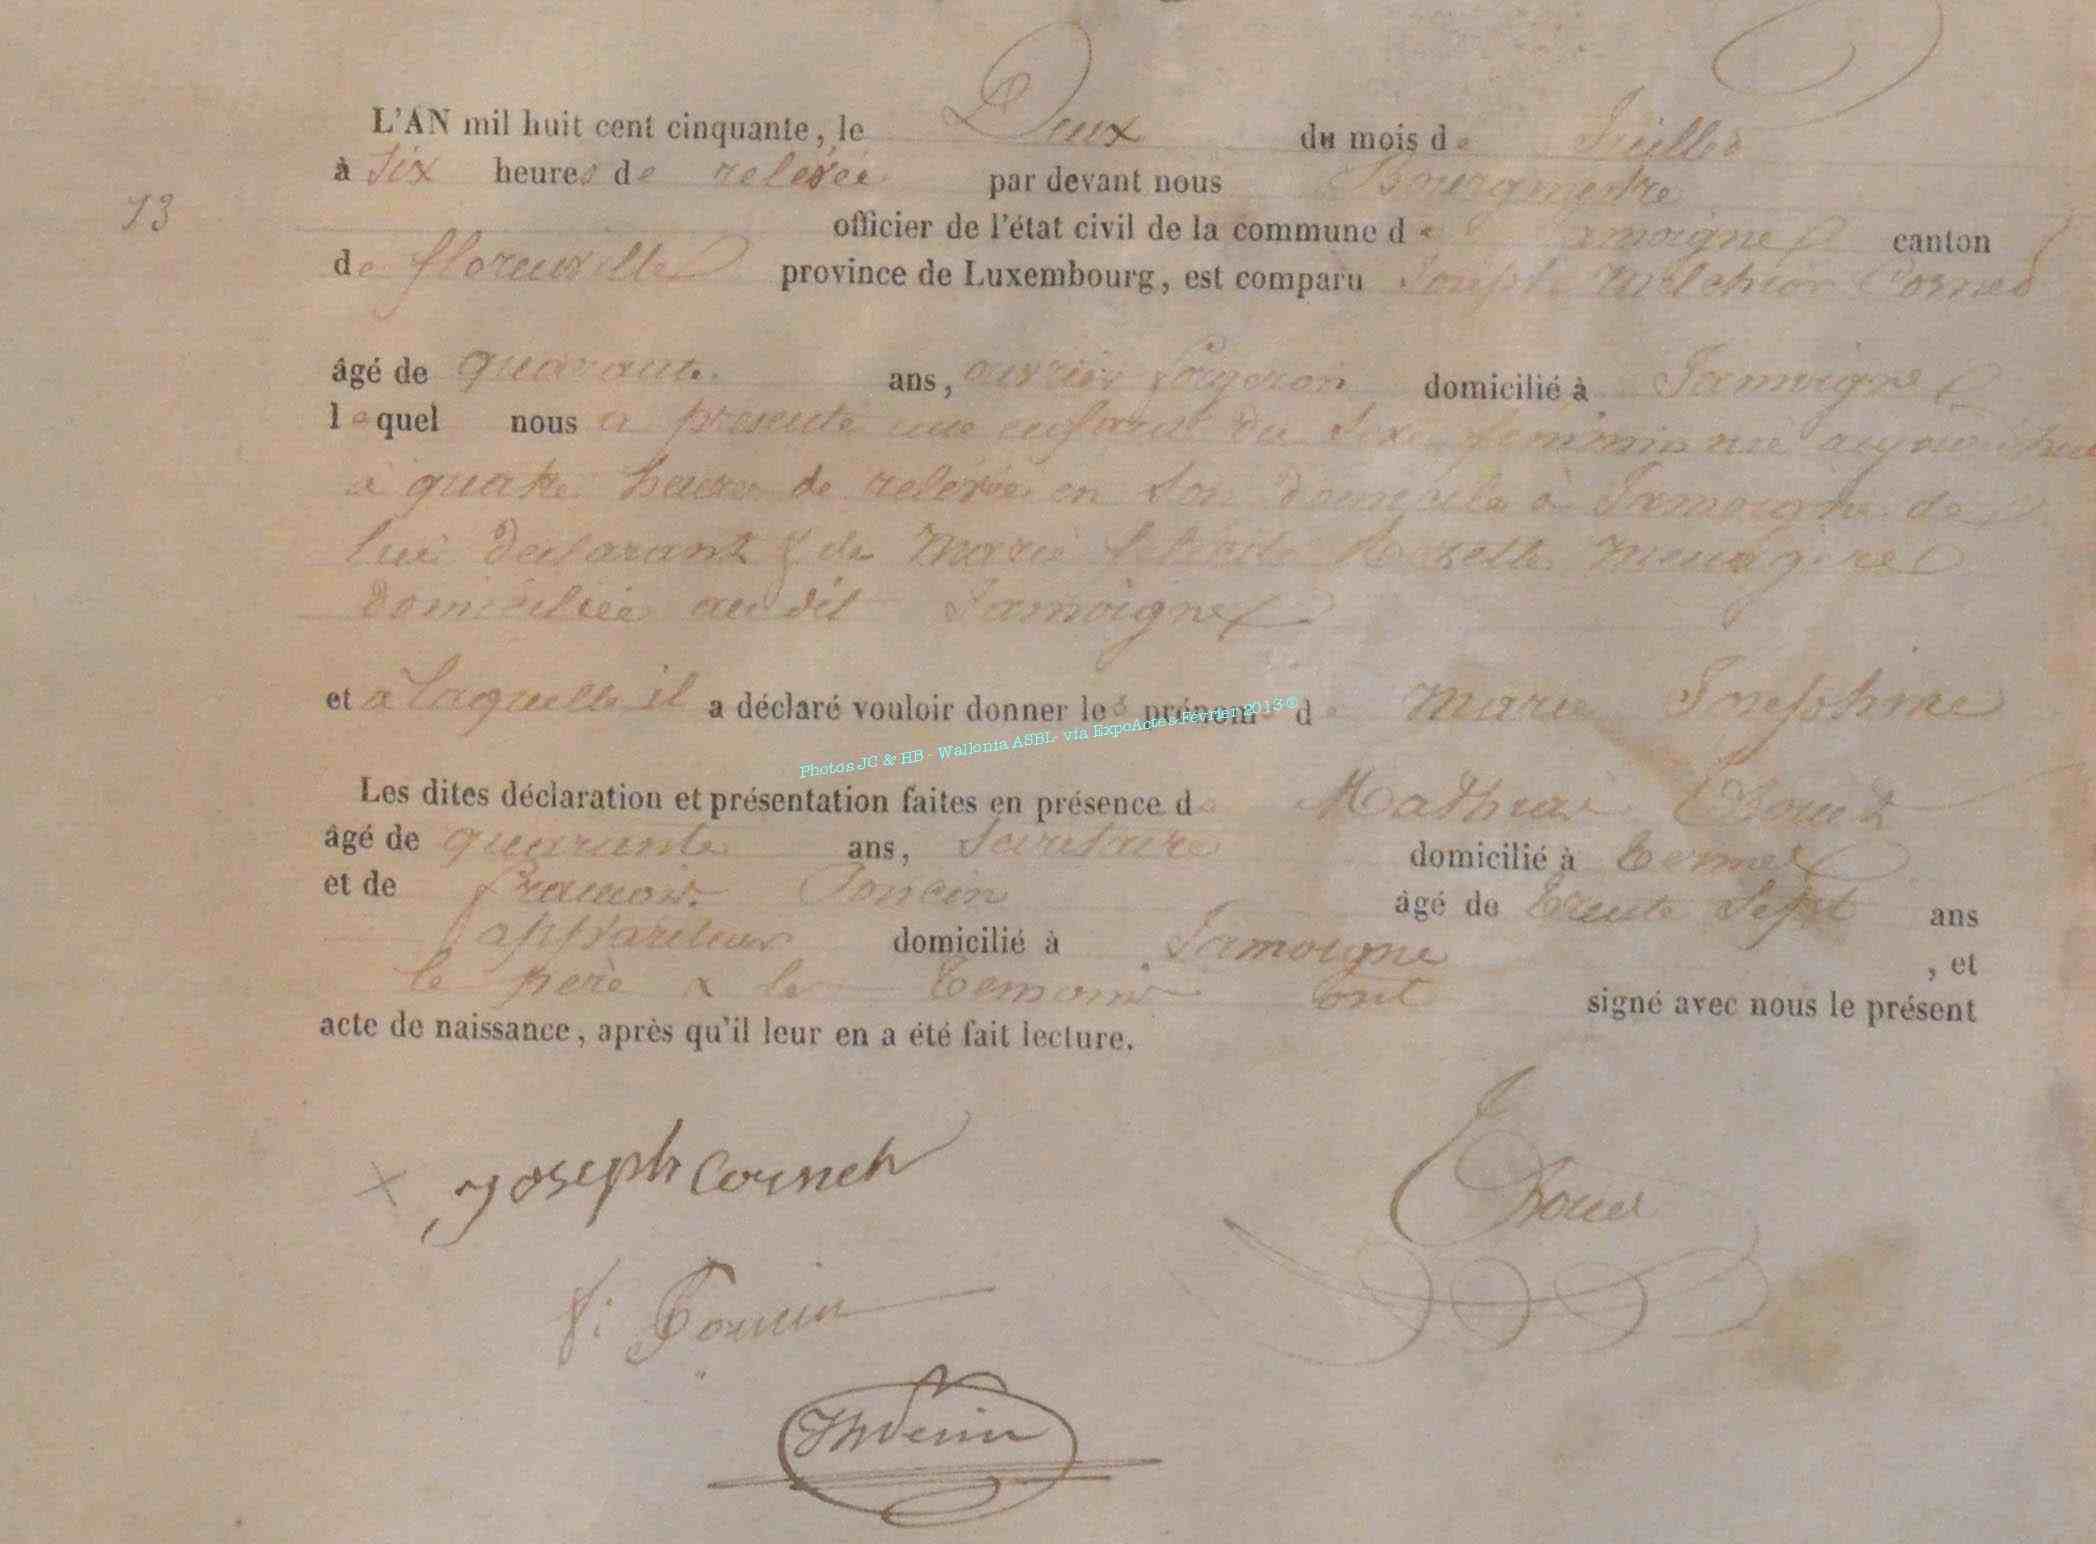 L'AN mil huit cent cinquante, le Deux du mois de Juillet
à six heures de relevée par devant nous Bourgmestre
13
officier de l'état civil de la commune de Jamoigne canton
de florenville province de Luxembourg, est comparu Joseph Melchior Cornet
âgé de quarante ans, ouvrier forgeron domicilié à Jamoigne
lequel nous a presenté une enfant du sexe feminin née aujourd'hui
à quatre heures de relevée en son domicile à Jamoigne de
lui declarant & de Marie menagère
domiciliée audit Jamoigne
et a laquelle il a déclaré vouloir donner les prénoms de Marie Josephine
Photos JC & HB - Wallonia ASBL- via ExpoActes-Février 2013®
Les dites déclaration et présentation faites en présence de Mathias
âgé de quarante ans, Secretaire domicilié à Termes
et de francois Poncin âgé de trente sept ans
appariteur domicilié à Jamoigne , et
le père & le temoins ont signé avec nous le présent
acte de naissance, après qu'il leur en a été fait lecture.
x Joseph Cornet
f: Poncin